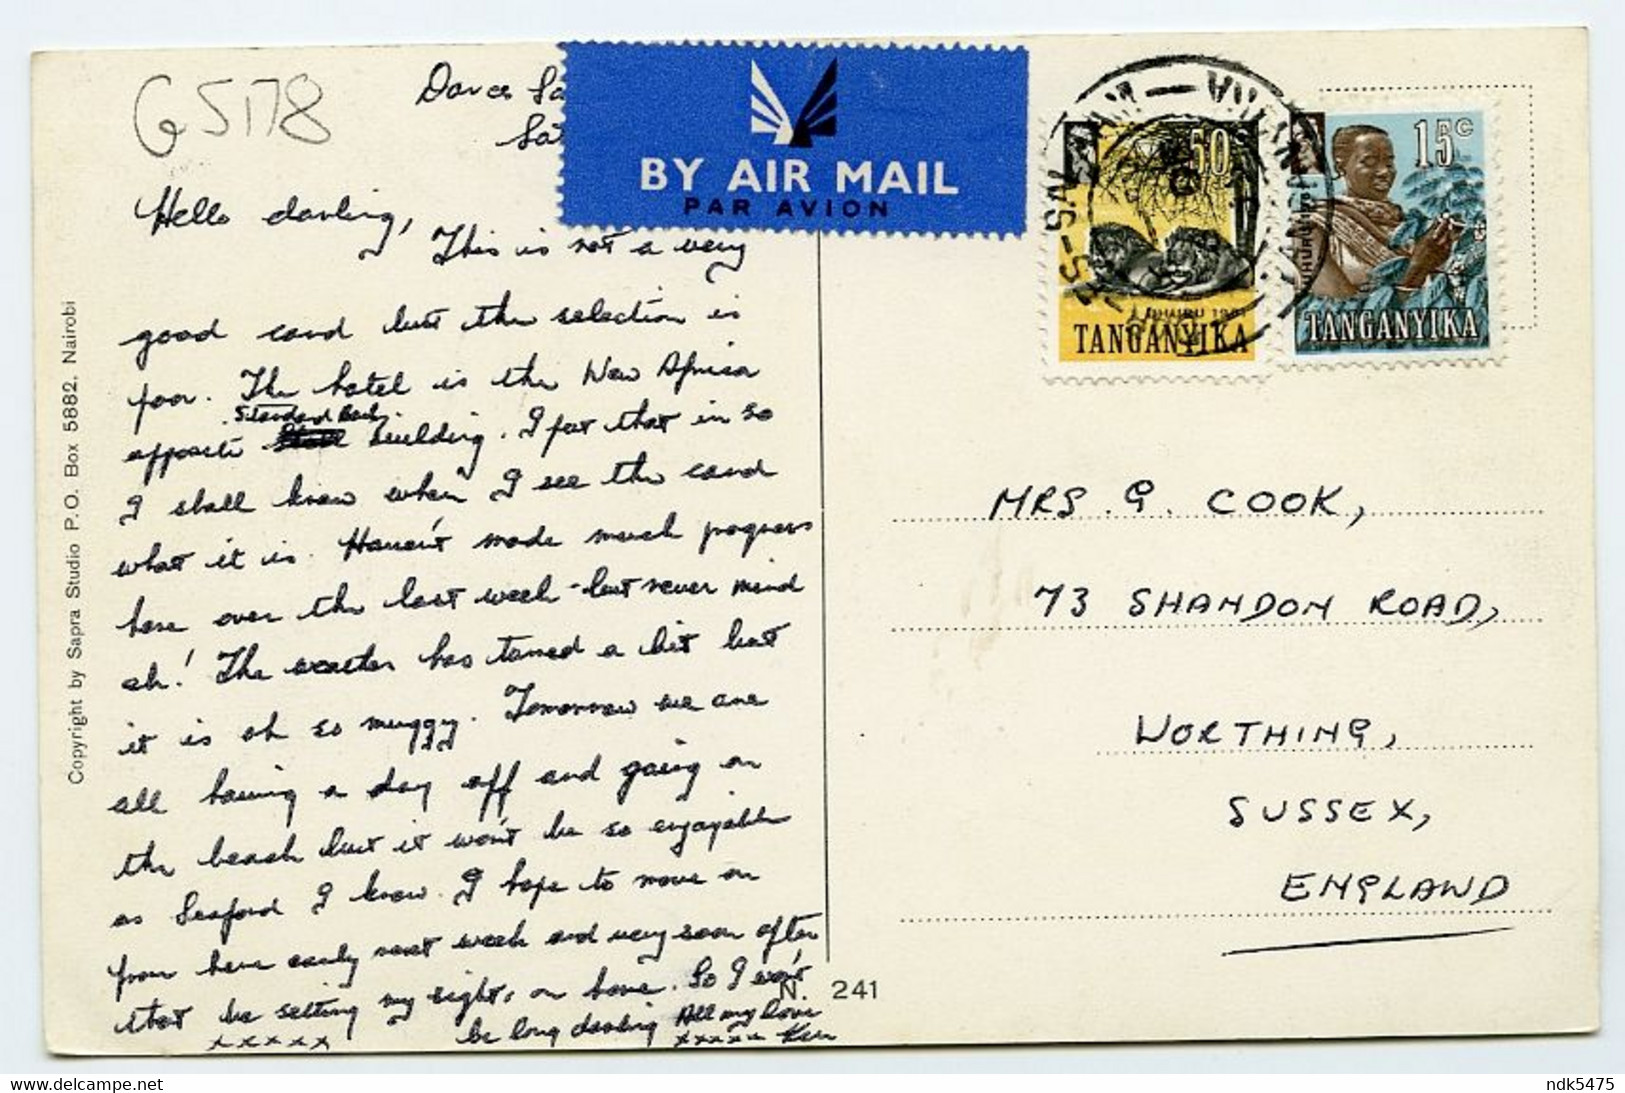 G5178
Dar es Sa
Sat
BY AIR MAIL
PAR AVION
Hello darling,
This is not a very
good card but the selection is
poor. The hotel is the New Africa
Standard Bank
opposite building. I put that in so
I shall know when I see the card
what it is. Haven't made much progress
here over the last week - but never mind
eh! The weather has turned a bit but
it is oh so muggy. Tomorrow we are
all having a day off and going on
the beach but it won't be so enjoyable
as Seaford I know. I hope to move on
from here early next week and very soon after
that be setting my sights on home. So I won't
be long darling All my love
xxxxx xxxxx Ken
Copyright by Sapra Studio P.O. Box 5882, Nairobi
N. 241
50c
UHURU 1961
TANGANYIKA
15c
UHURU 1961
TANGANYIKA
MRS. G. COOK,
73 SHANDON ROAD,
WORTHING,
SUSSEX,
ENGLAND
ndk5475